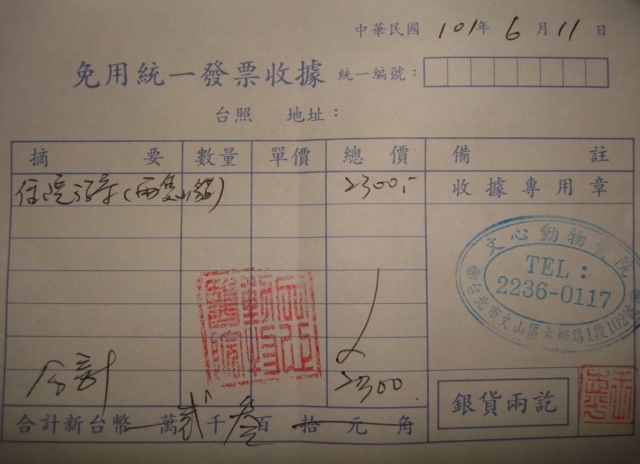 中華民國 101年 6月 11日
免用統一發票收據 統一編號：
台照 地址：
摘要 數量 單價 總價 備註
住院治療(兩隻貓) 2300.- 收據專用章
文心動物醫院
TEL：
2236-0117
台北市文山區木柵路1段102號
合計 2300.
銀貨兩訖
合計新台幣 萬貳千叁百拾元角